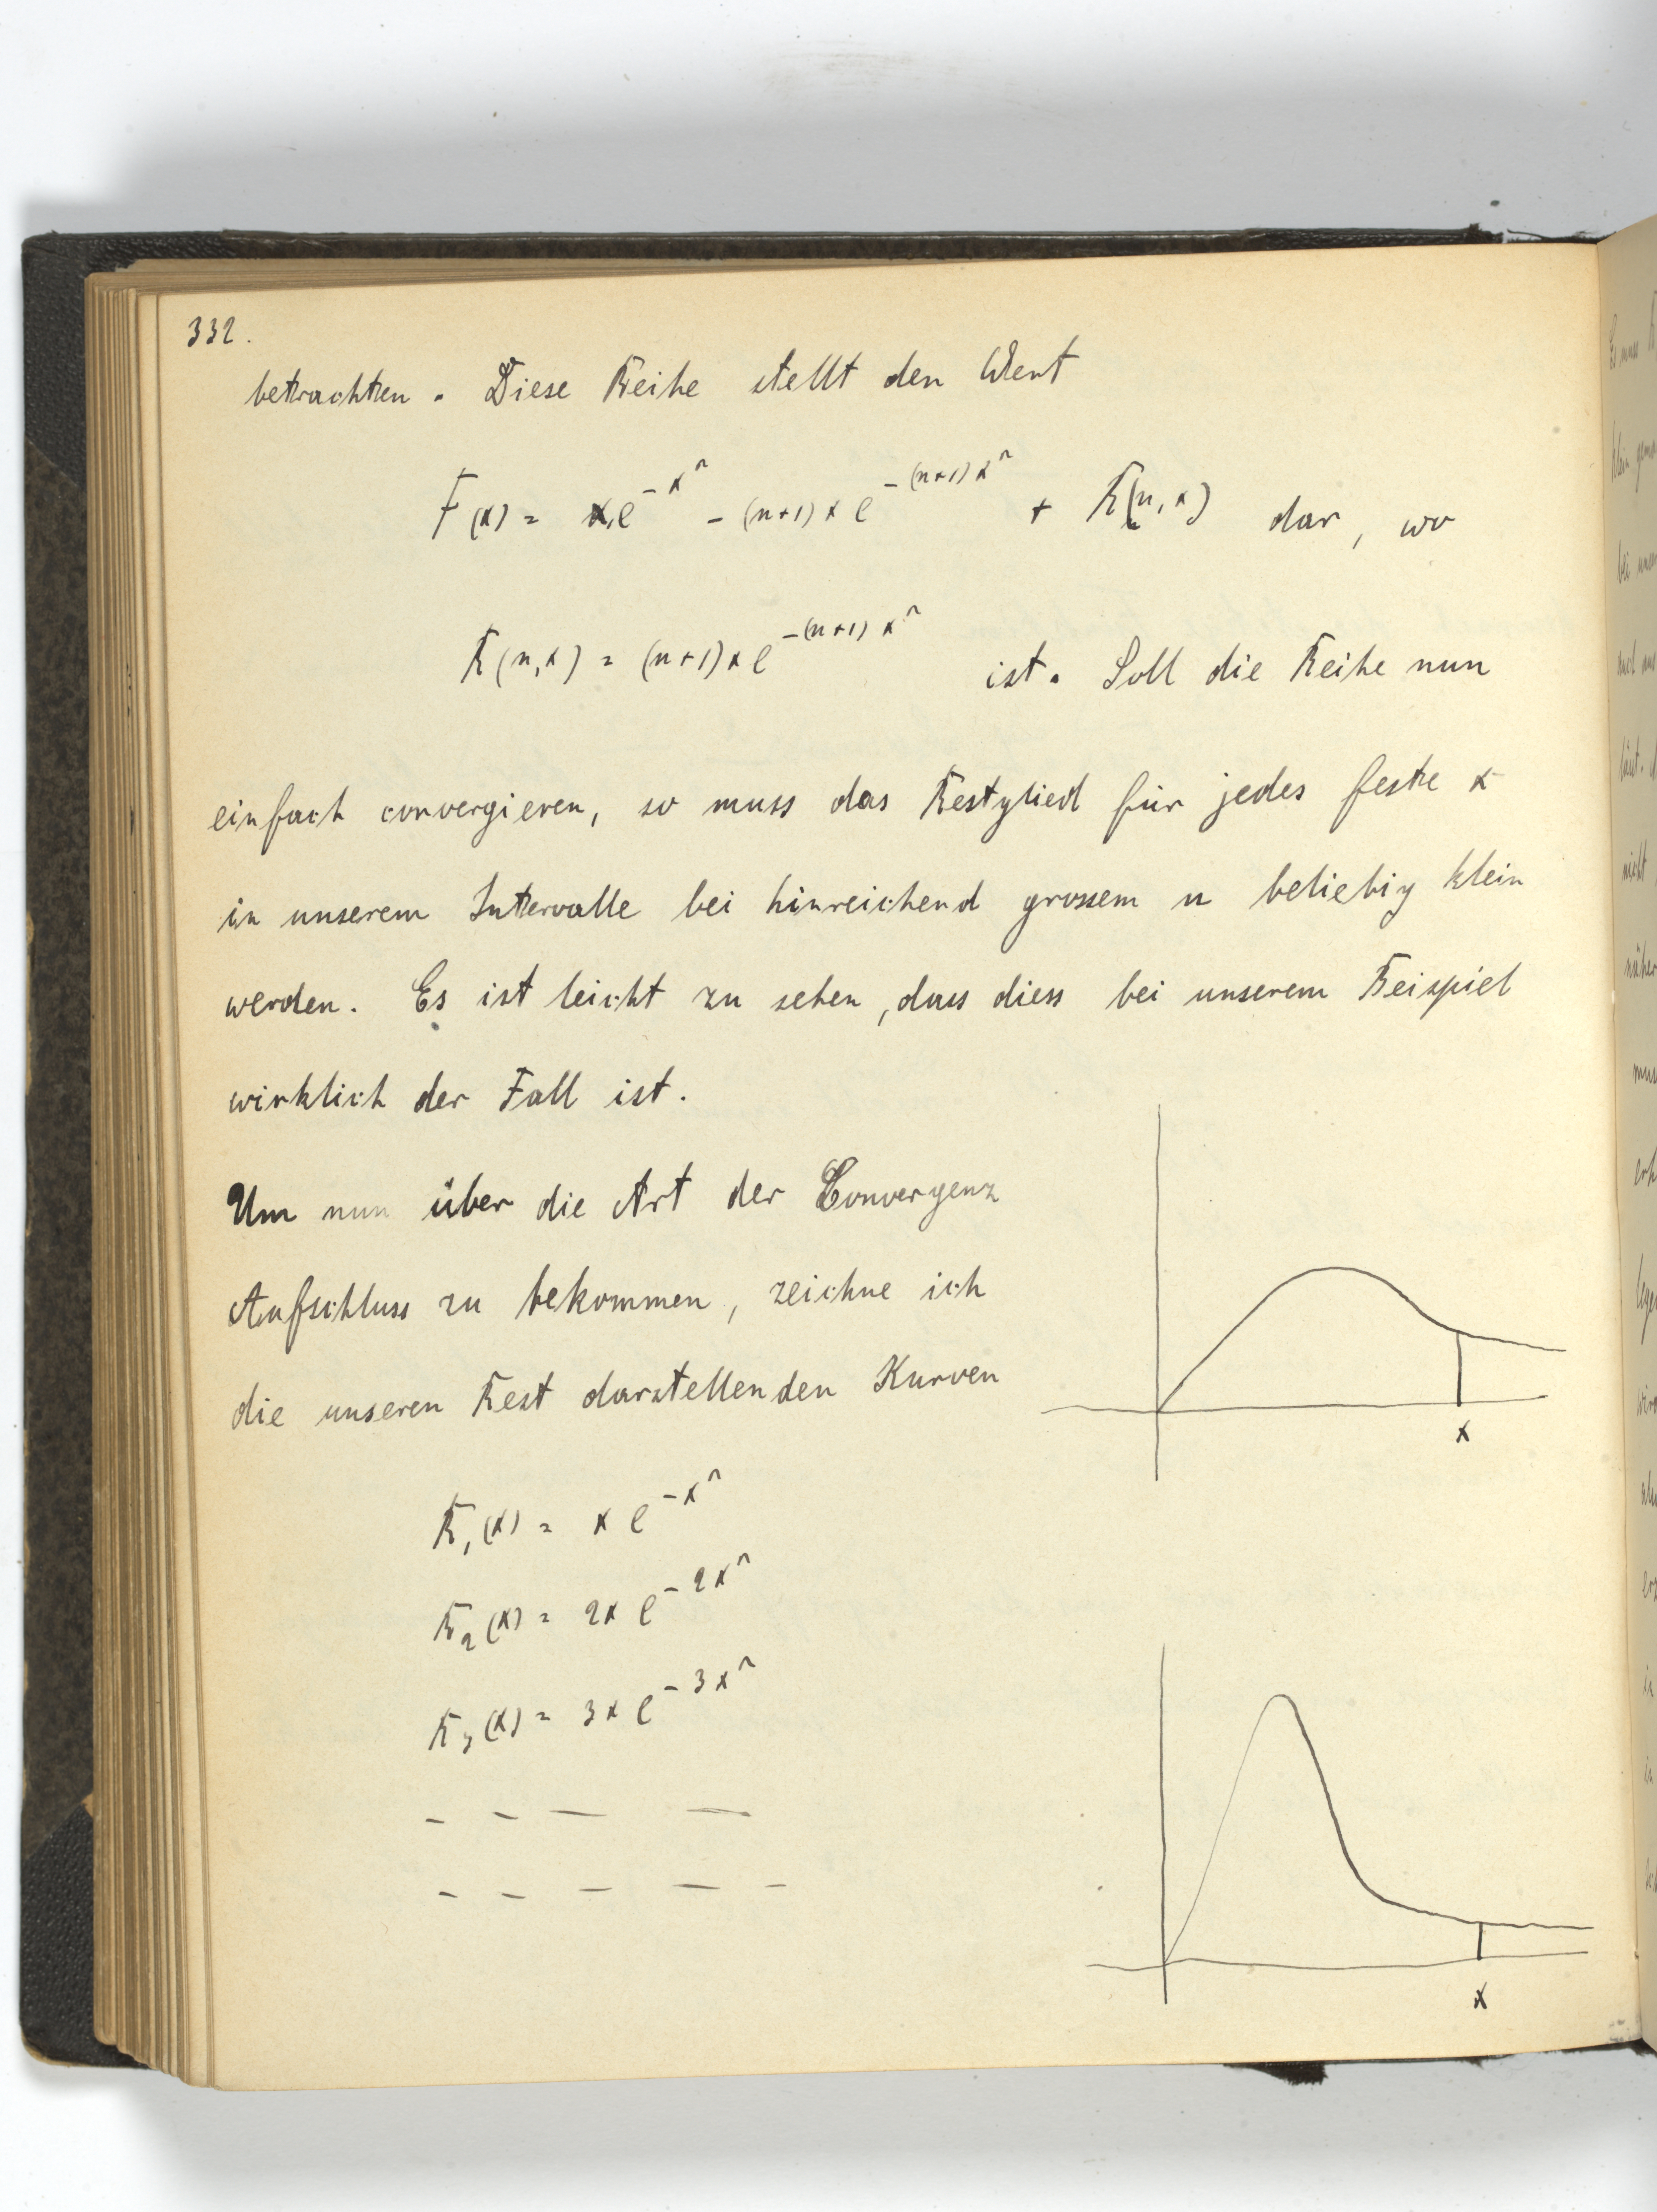 332.
betrachten. Diese Reihe stellt den Wert
F(x) = x e^{-x^2} - (n+1) x e^{-(n+1) x^2} + R(n, x) dar, wo
R(n, x) = (n+1) x e^{-(n+1) x^2} ist. Soll die Reihe nun
einfach convergieren, so muss das Restglied für jedes feste x
in unserem Intervalle bei hinreichend grossem n beliebig klein
werden. Es ist leicht zu sehen, dass diess bei unserem Beispiel
wirklich der Fall ist.
Um nun über die Art der Convergenz
Aufschluss zu bekommen, zeichne ich
die unseren Rest darstellenden Kurven
R_1(x) = x e^{-x^2}
R_2(x) = 2x e^{-2x^2}
R_3(x) = 3x e^{-3x^2}
x
x